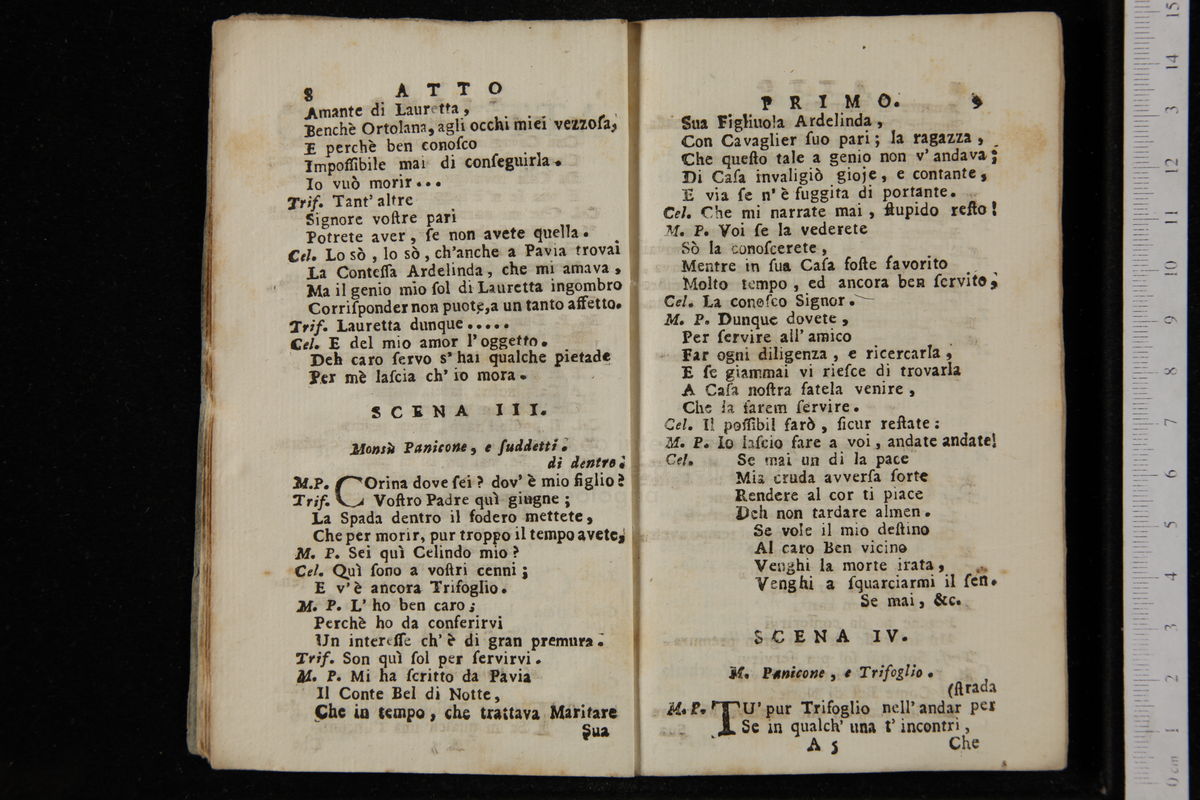 8 ATTO
Amante di Lauretta,
Benchè Ortolana, agli occhi miei vezzoſa,
E perchè ben conoſco
Impoſſibile mai di conſeguirla.
Io vuò morir...
Trif. Tant' altre
Signore voſtre pari
Potrete aver, ſe non avete quella.
Cel. Lo sò, lo sò, ch'anche a Pavia trovai
La Conteſſa Ardelinda, che mi amava,
Ma il genio mio ſol di Lauretta ingombro
Corriſponder non puote, a un tanto affetto.
Trif. Lauretta dunque.....
Cel. E del mio amor l'oggetto.
Deh caro ſervo s' hai qualche pietade
Per mè laſcia ch' io mora.
SCENA III.
Monsù Panicone, e ſuddetti.
di dentro.
M.P. COrina dove ſei? dov' è mio figlio?
Trif. Voſtro Padre quì giugne;
La Spada dentro il fodero mettete,
Che per morir, pur troppo il tempo avete.
M. P. Sei quì Celindo mio?
Cel. Quì ſono a voſtri cenni;
E v' è ancora Trifoglio.
M. P. L' ho ben caro;
Perchè ho da conferirvi
Un intereſſe ch' è di gran premura.
Trif. Son quì ſol per ſervirvi.
M. P. Mi ha ſcritto da Pavia
Il Conte Bel di Notte,
Che in tempo, che trattava Maritare
Sua
PRIMO. 9
Sua Figliuola Ardelinda,
Con Cavaglier ſuo pari; la ragazza,
Che queſto tale a genio non v' andava;
Di Caſa invaligiò gioje, e contante,
E via ſe n' è fuggita di portante.
Cel. Che mi narrate mai, ſtupido reſto!
M. P. Voi ſe la vederete
Sò la conoſcerete,
Mentre in ſua Caſa foſte favorito
Molto tempo, ed ancora ben ſervito,
Cel. La conoſco Signor.
M. P. Dunque dovete,
Per ſervire all' amico
Far ogni diligenza, e ricercarla,
E ſe giammai vi rieſce di trovarla
A Caſa noſtra fatela venire,
Che la farem ſervire.
Cel. Il poſſibil farò, ſicur reſtate:
M. P. Io laſcio fare a voi, andate andate!
Cel. Se mai un di la pace
Mia cruda avverſa ſorte
Rendere al cor ti piace
Deh non tardare almen.
Se vole il mio deſtino
Al caro Ben vicino
Venghi la morte irata,
Venghi a ſquarciarmi il ſen.
Se mai, &c.
SCENA IV.
M. Panicone, e Trifoglio.
(ſtrada
M.P. TU' pur Trifoglio nell' andar per
Se in qualch' una t' incontri,
A 5 Che
15
14
13
12
11
10
9
8
7
6
5
4
3
2
1
0 cm